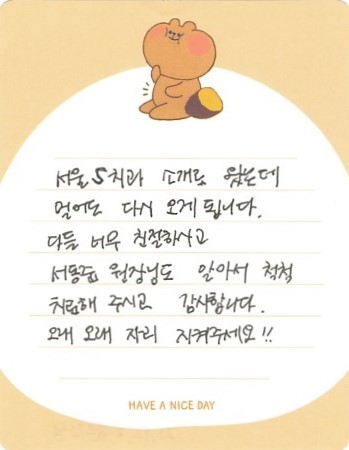 서울 S치과 소개로 왔는데
멀어도 다시 오게 됩니다.
다들 너무 친절하시고
서동줍 원장님도 알아서 척척
치료해 주시고 감사합니다.
오래 오래 자리 지켜주세요!!
HAVE A NICE DAY